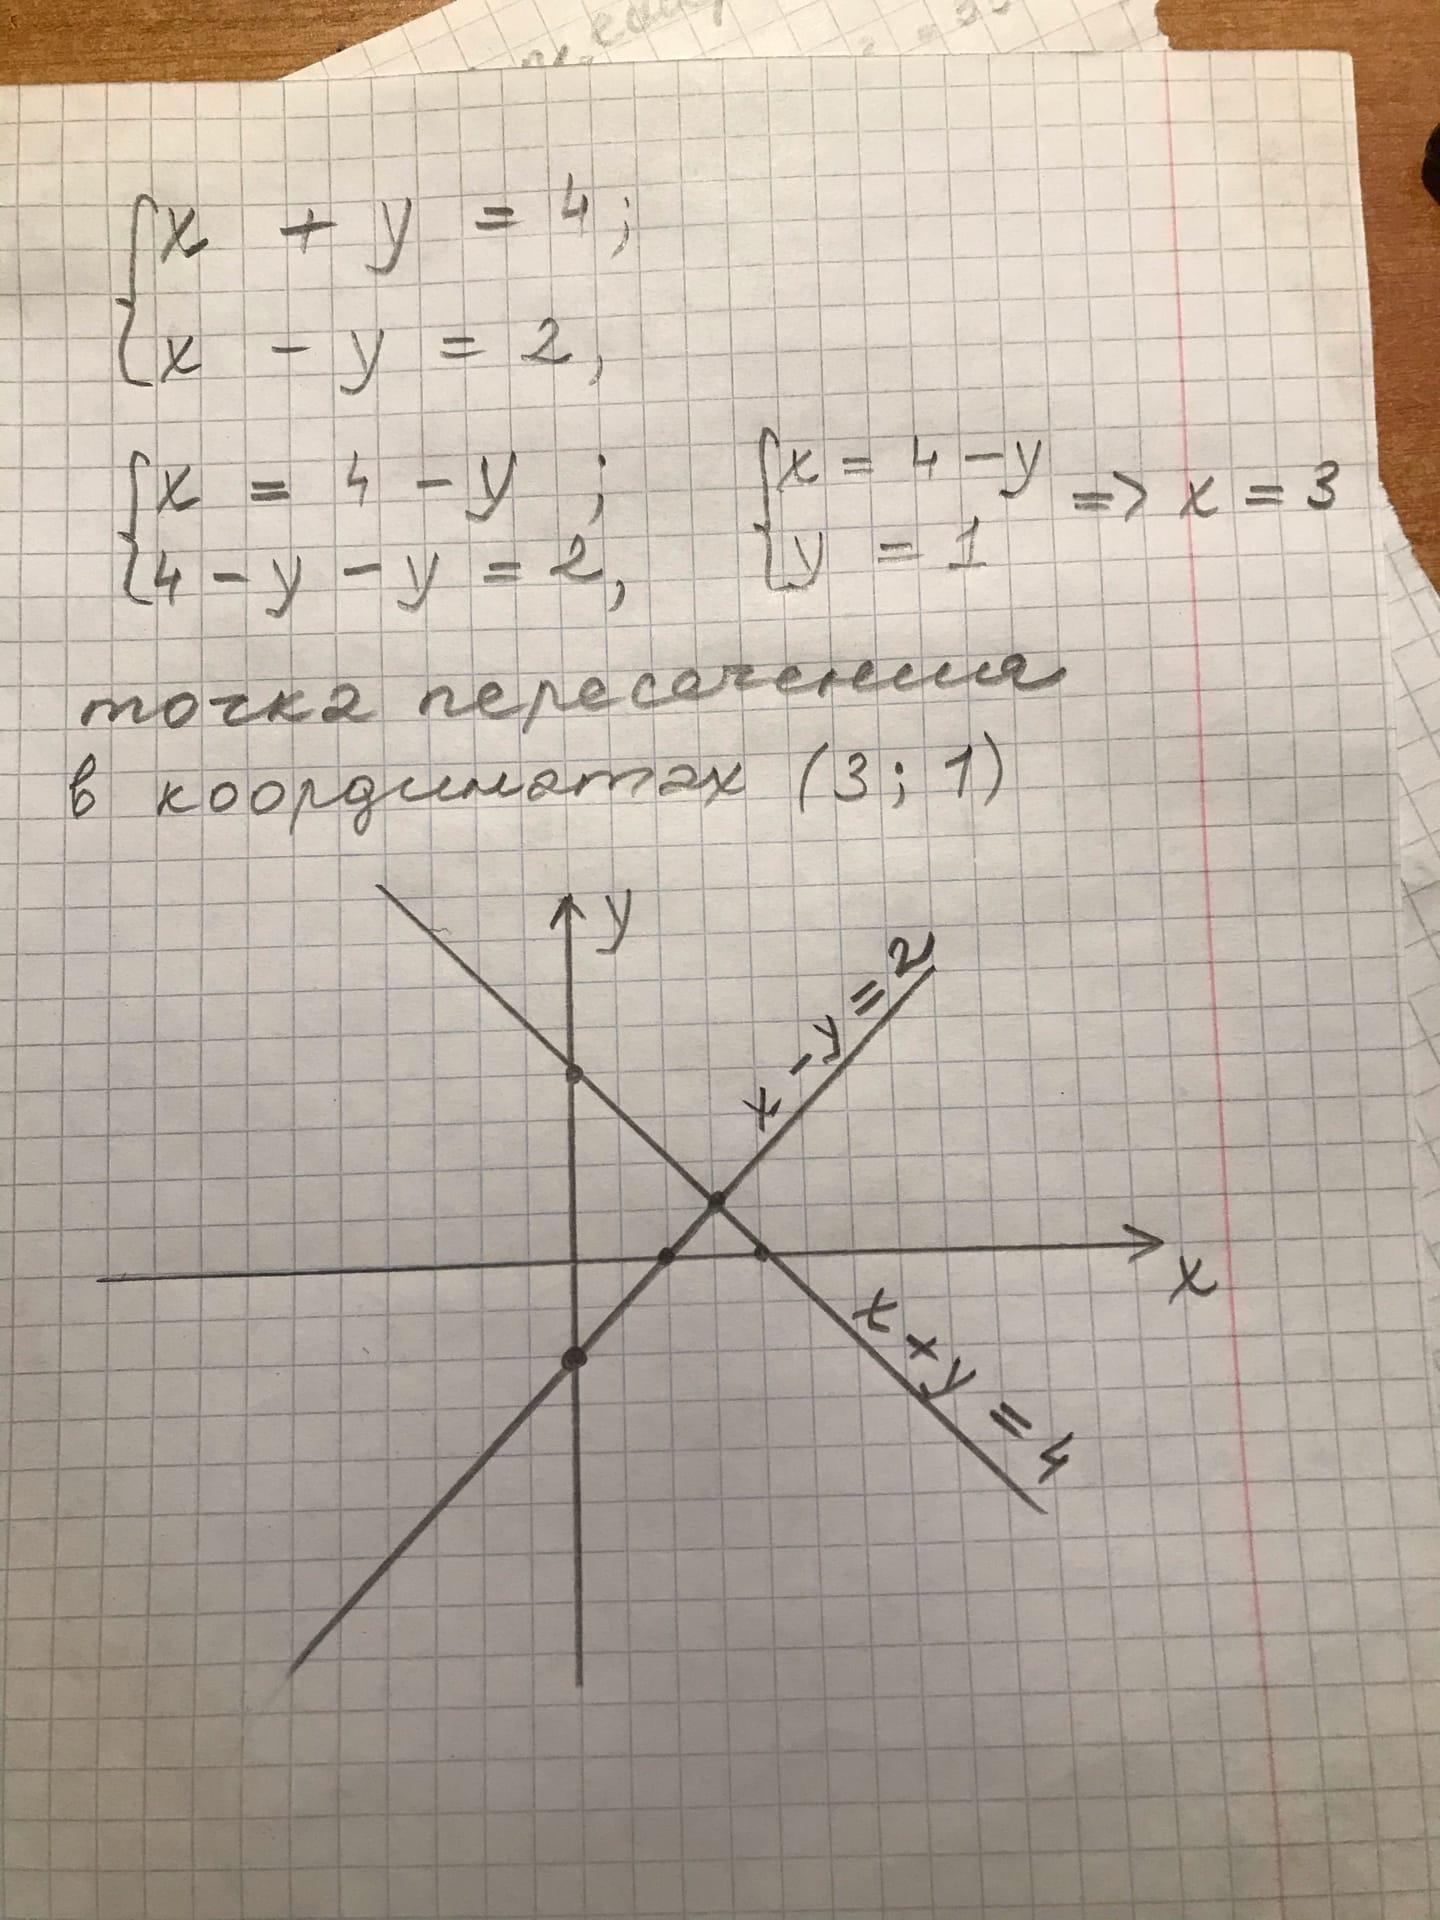 x + y = 4;
x - y = 2,
x = 4 - y ;
4 - y - y = 2,
x = 4 - y
y = 1
=> x = 3
точка пересечения
в координатах (3; 1)
y
x - y = 2
x
x + y = 4